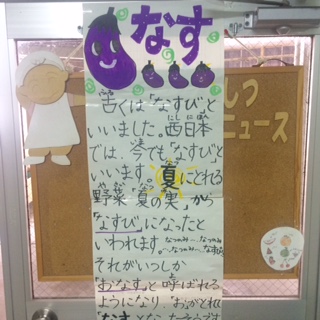 なす
しつ
ニュース
古くは「なすび」と
いいました。西日本
では、今でも「なすび」と
いいます。夏にとれる
野菜「夏の実」から
「なすび」になったと
いわれます。なつのみ…なつみ
それがいつしか
「おなす」と呼ばれる
ようになり、「お」がとれ
「なす」となったそうです